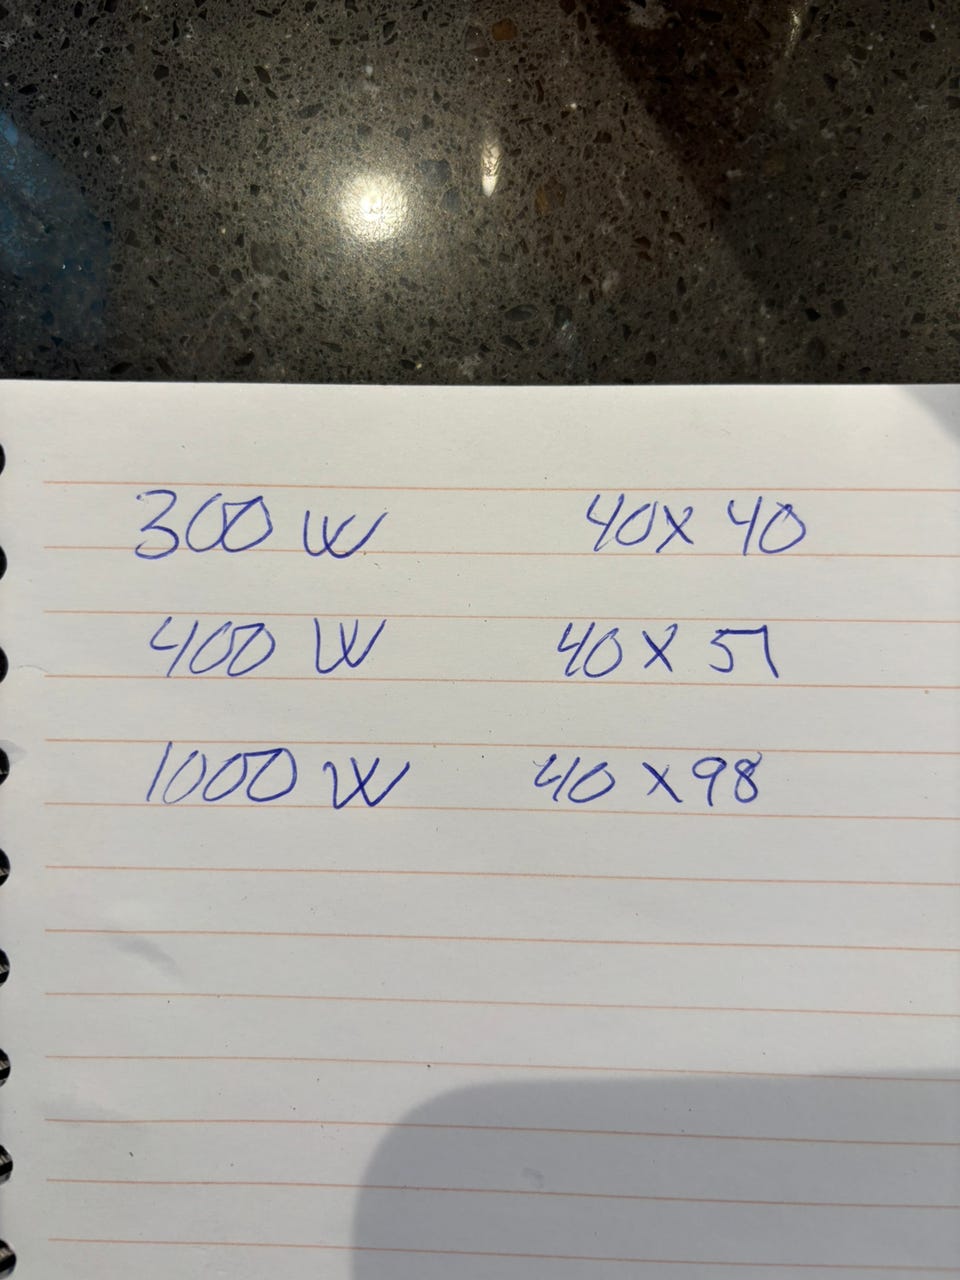 300 W 40x 40
400 W 40 X 51
1000 W 40 x 98